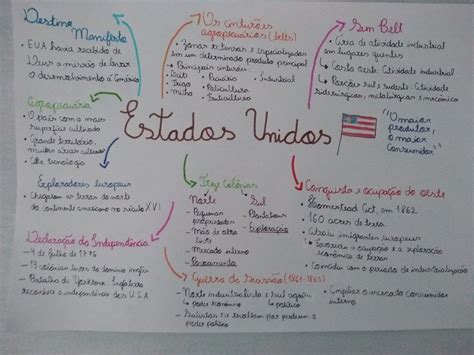 Destino Manifesto
• EUA havia recebido de Deus a missão de levar o desenvolvimento à América
Agropecuária
• O país com a mais superfície cultivada
• Grande território, muitas áreas cultiváveis
• Alta tecnologia
Exploradores Europeus
• Chegaram as terras do norte do continente americano no século XVI
Declaração da Independência
- 4 de Julho de 1776
- 13 colônias livres do domínio inglês
- Batalha de Yorktown: Inglaterra reconhece a independência dos U.S.A
Os cinturões agropecuários (belts)
• Zonas extensas e especializadas em um determinado produto principal
• Principais cinturões
• Leite
• Trigo
• Milho
• Pecuária
• Policultura
• Fruticultura
• Industrial
Sun Belt
• Área de atividade industrial em lugares quentes
↳ Costa oeste: Atividade industrial
↳ Porções sul e sudeste: Atividade siderúrgicas, metalúrgicas e mecânica
Estados Unidos
"O maior produtor, o maior consumidor"
Treze Colônias
Norte
- Pequenas propriedades
- Mão de obra livre
- Mercado interno
- Povoamento
Sul
- Plantations
- Exploração
Conquista e ocupação do oeste
• Homestead Act, em 1862
• 160 acres de terra
• Atraiu imigrantes europeus
↳ a ocupação e a exploração econômica de terras
• Coincidiu com o período de industrialização
• Ampliar o mercado consumidor interno
Guerra de Secessão (1861-1865)
- Norte industrialista e sul agrário
↳ poder econômico
↳ político
- Sulistas se revoltam por perderem o poder político